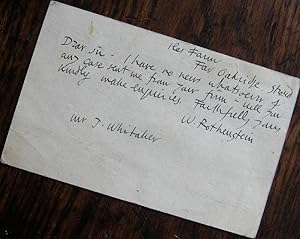 Iles Farm
Far Oakridge Stroud
Dear sir - I have no news whatsoever of
any case sent me from your firm - will you
kindly make enquiries. Faithfully yours
W. Rothenstein
Mr J. Whitaker